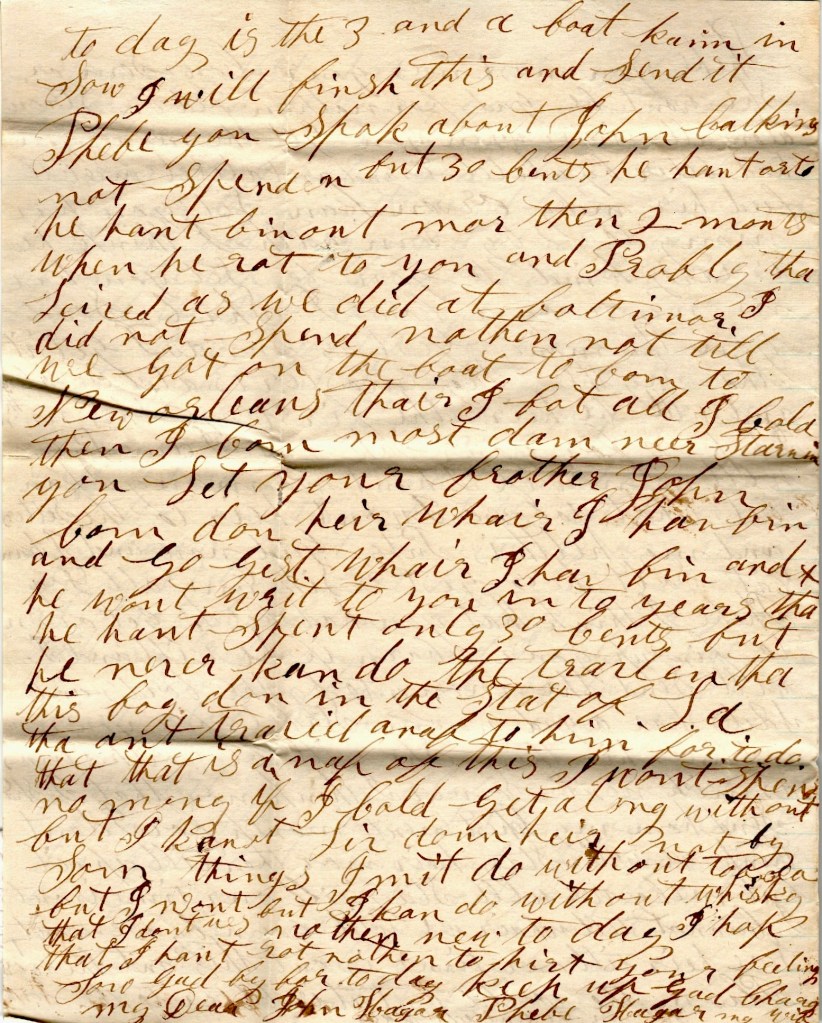 to day is the 3 and a boat kaim in
Sow I will finsh this and Send it
Phebe you Spok about John talking
not Spenden but 30 cents he hant orto
he hant bin out mor then 2 monts
when he rot to you and Probly tha
Leived as we did at boltimor I
did not Spend nothen not till
we Got on the boat to com to
New orleans thair I bot all I cold
then I com most dam neer Starvin
you Let your brother John
com don heir whair I hav bin
and Go Gest whair I hav bin and
he wont writ to you in to years tha
he hant Spent only 30 cents but
he never kan do the travlen tha
this boy don in the Stat of La
tha ant travild anaf to him for to do
that that is anaf of this I wont Spend
no mony if I cold Get along without
but I kanot Liv doun heir not by
Som things I mit do without
but I wont but I kan do without whisky
that I dont us nothen new to day I hop
that I hant rot nothen to hirt your feelings
Sow Gad by for to day keep up Gad
my Dear John Hagar Phebe Hagar my